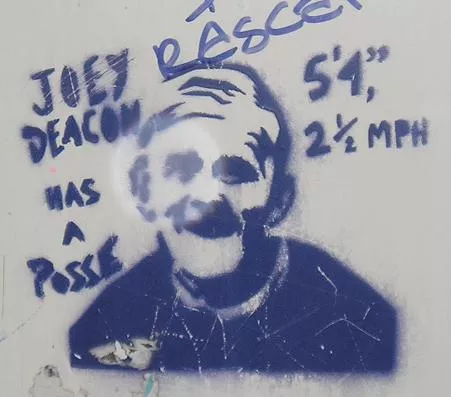 RASCE
JOEY
DEACON
HAS
A
POSSE
5'4",
2½ MPH